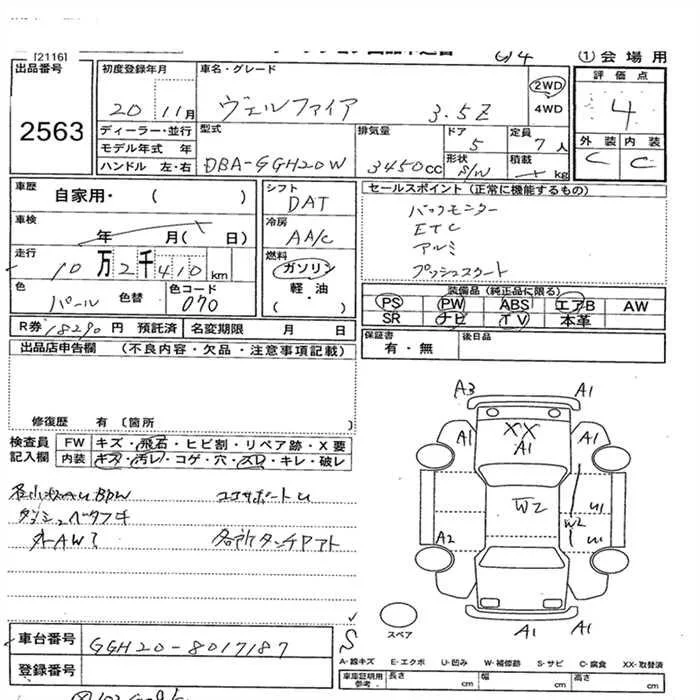 [2116]
① 会 場 用
出品番号
2563
初度登録年月
20 11月
車名・グレード
ヴェルファイア 3.5Z
2WD
4WD
評 価 点
4
ディーラー・並行
モデル年式 年
ハンドル 左・右
型式
DBA-GGH20W
排気量
3450cc
ドア
5
定員
7人
形状
S/W
積載
kg
外 装 内 装
C C
車歴
自家用・ ( )
車検
年 月( 日)
走行
10万2千410km
色
パール
色替
色コード
070
シフト
DAT
冷房
AA/C
燃料
ガソリン
軽・油
( ・ )
セールスポイント (正常に機能するもの)
バックモニター
ETC
アルミ
プッシュスタート
装備品 (純正品に限る)
PS PW ABS エアB AW
SR ナビ TV 本革
R券 18290 円 預託済 名変期限 月 日
保証書
有・無
後日品
出品店申告欄 (不良内容・欠品・注意事項記載)
修復歴 有 (箇所 )
検査員
記入欄
FW キズ・飛石・ヒビ割・リペア跡・X要
内装 キズ・汚レ・コゲ・穴・スレ・キレ・破レ
A3 A1
A1 XX A1
A1
W2
U1
W2
A2
A1 A1
スペア
車台番号
GGH20-8017187
S
登録番号
A-線キズ E-エクボ U-凹み W-補修跡 S-サビ C-腐食 XX-取替済
車庫証明用
参考。
長さ cm 幅 cm 高さ cm